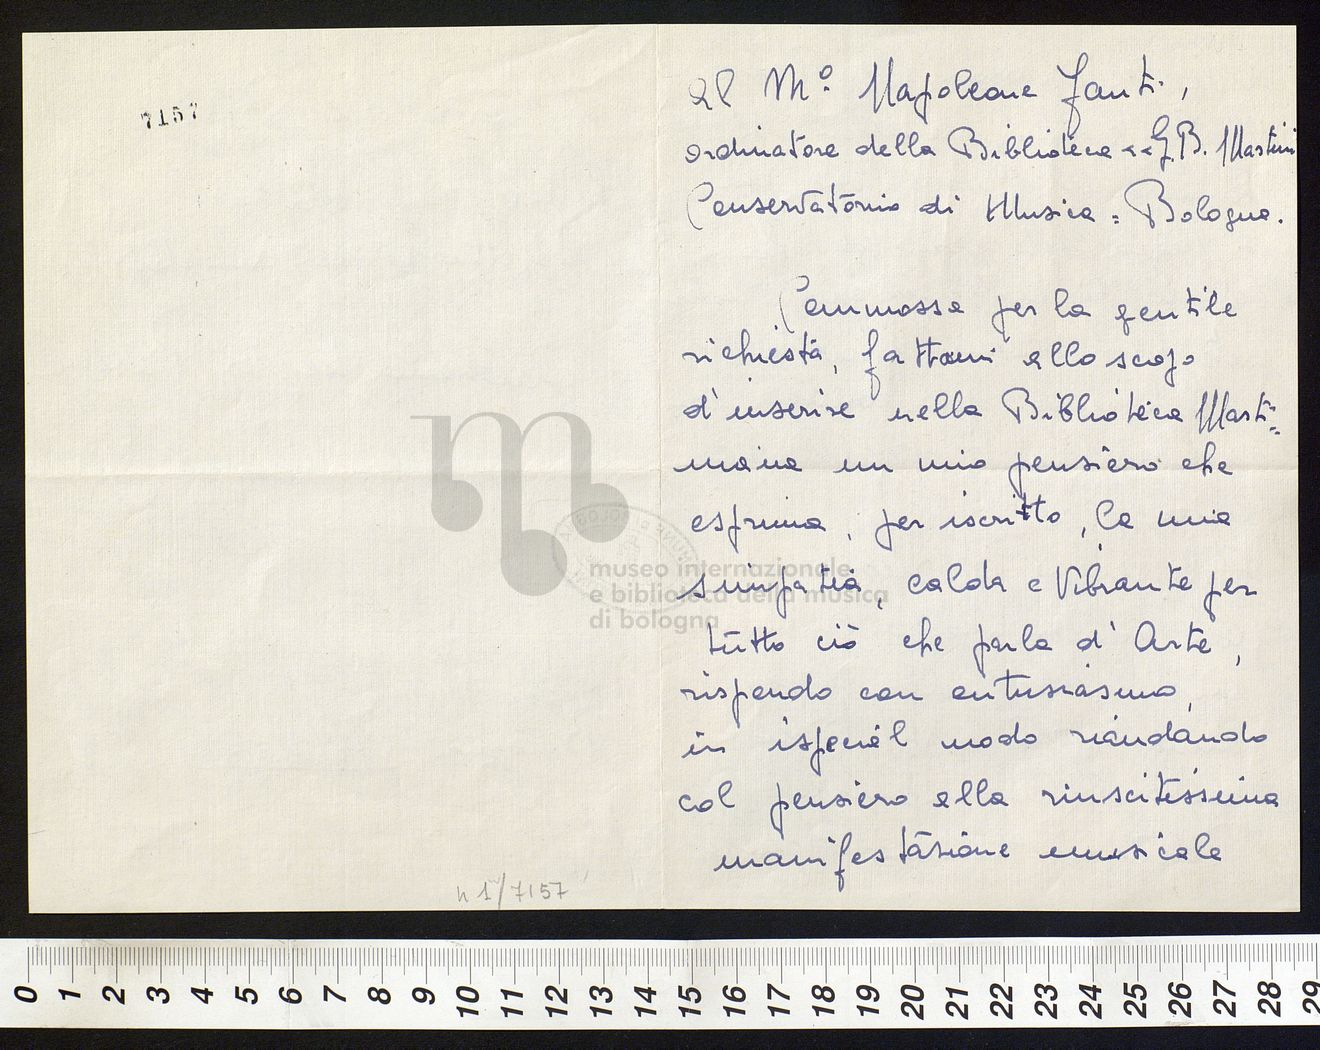 7157
n 1/7157
Al Mº. Napoleone Fanti,
ordinatore della Biblioteca «G.B. Martini
Conservatorio di Musica = Bologna.
Commossa per la gentile
richiesta, fattami allo scopo
d'inserire nella Biblioteca Marti=
niana un mio pensiero che
esprima, per iscritto, la mia
simpatia, calda e vibrante per
tutto ciò che parla d'Arte,
rispondo con entusiasmo,
in ispecial modo riandando
col pensiero alla riuscitissima
manifestazione musicale
museo internazionale
e biblioteca della musica
di bologna
0 1 2 3 4 5 6 7 8 9 10 11 12 13 14 15 16 17 18 19 20 21 22 23 24 25 26 27 28 29